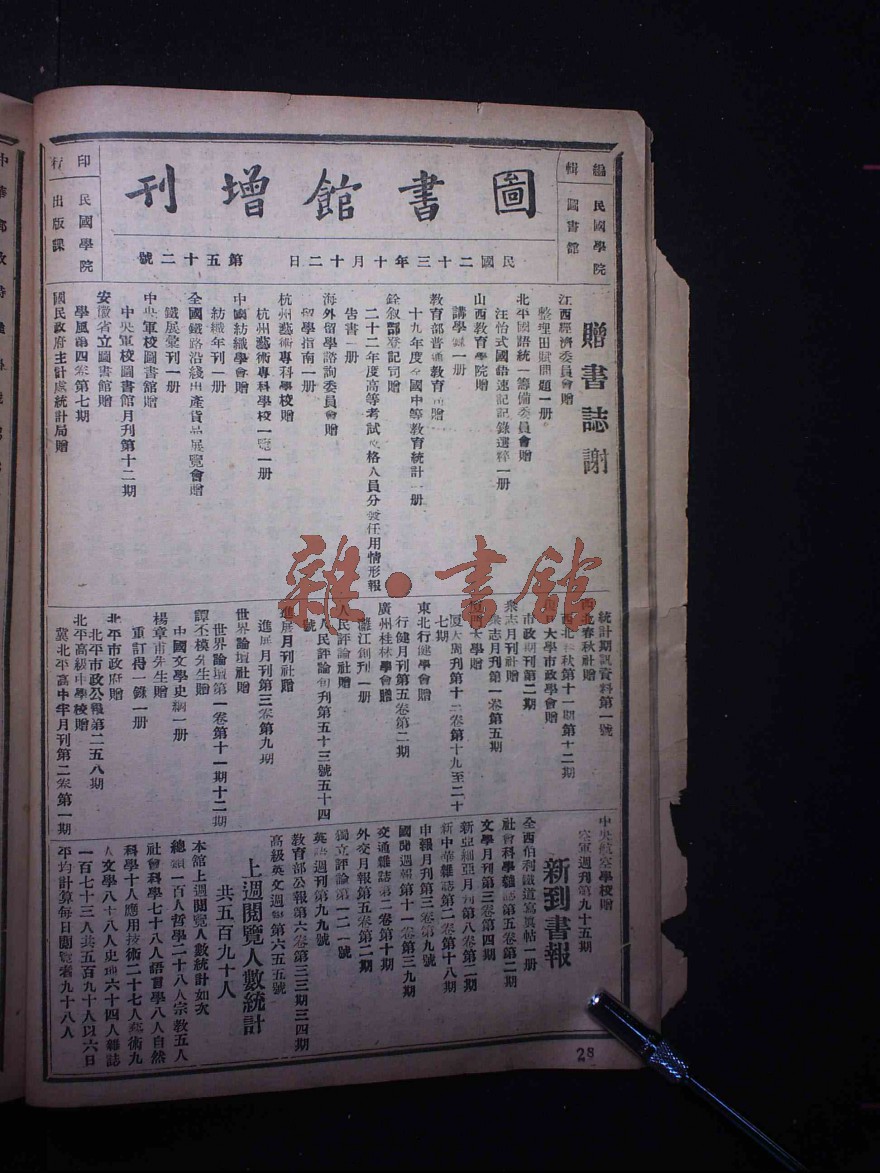 圖書館增刊
編輯 民國學院圖書館
印行 民國學院出版課
民國二十三年十月十二日 第五十二號
贈書誌謝
江西經濟委員會贈
整理田賦問題一册
北平國語統一籌備委員會贈
汪怡式國語速記記錄選粹一册
山西教育學院贈
講學錄一册
教育部普通教育司贈
十九年度全國中等教育統計一册
銓敘部登記司贈
二十二年度高等考試及格人員分發任用情形報
告書一册
海外留學諮詢委員會贈
留學指南一册
杭州藝術專科學校贈
杭州藝術專科學校一覽一册
中國紡織學會贈
紡織年刊一册
全國鐵路沿綫出產貨品展覽會贈
鐵展彙刊一册
中央軍校圖書館贈
中央軍校圖書館月刊第十二期
安徽省立圖書館贈
學風第四卷第七期
國民政府主計處統計局贈
統計期訊資料第一號
西北春秋社贈
西北春秋第十一期第十二期
大學市政學會贈
市政期刊第二期
眾志月刊社贈
眾志月刊第一卷第五期
廈門大學贈
廈大周刊第十二卷第十九至二十
七期
東北行健學會贈
行健月刊第五卷第二期
廣州桂林學會贈
灕江創刊一册
人民評論社贈
人民評論旬刊第五十三號五十四
號
進展月刊社贈
進展月刊第三卷第九期
世界論壇社贈
世界論壇第一卷第十一期十二期
譚丕模先生贈
中國文學史綱一册
楊章甫先生贈
重訂得一錄一册
北平市政府贈
北平市政公報第二五八期
北平高級中學校贈
冀北平高中半月刊第二卷第一期
中央航空學校贈
空軍週刊第九十五期
新到書報
全西伯利鐵道寫眞帖一册
社會科學雜誌第五卷第二期
文學月刊第三卷第四期
新亞細亞月刊第八卷第二期
新中華雜誌第二卷第十八期
申報月刊第三卷第九號
國聞週報第十一卷第三九期
交通雜誌第二卷第十期
外交月報第五卷第二期
獨立評論第一二一號
英語週刊第九九號
教育部公報第六卷第三三期三四期
高級英文週報第六五五號
上週閱覽人數統計
共五百九十人
本館上週閱覽人數統計如次
總類一百人哲學二十八人宗教五人
社會科學七十八人語言學八人自然
科學十人應用技術二十七人藝術九
人文學八十八人史地六十四人雜誌
一百七十三人共五百九十人以六日
平均計算每日閱覽者九十八人
28
雜·書館